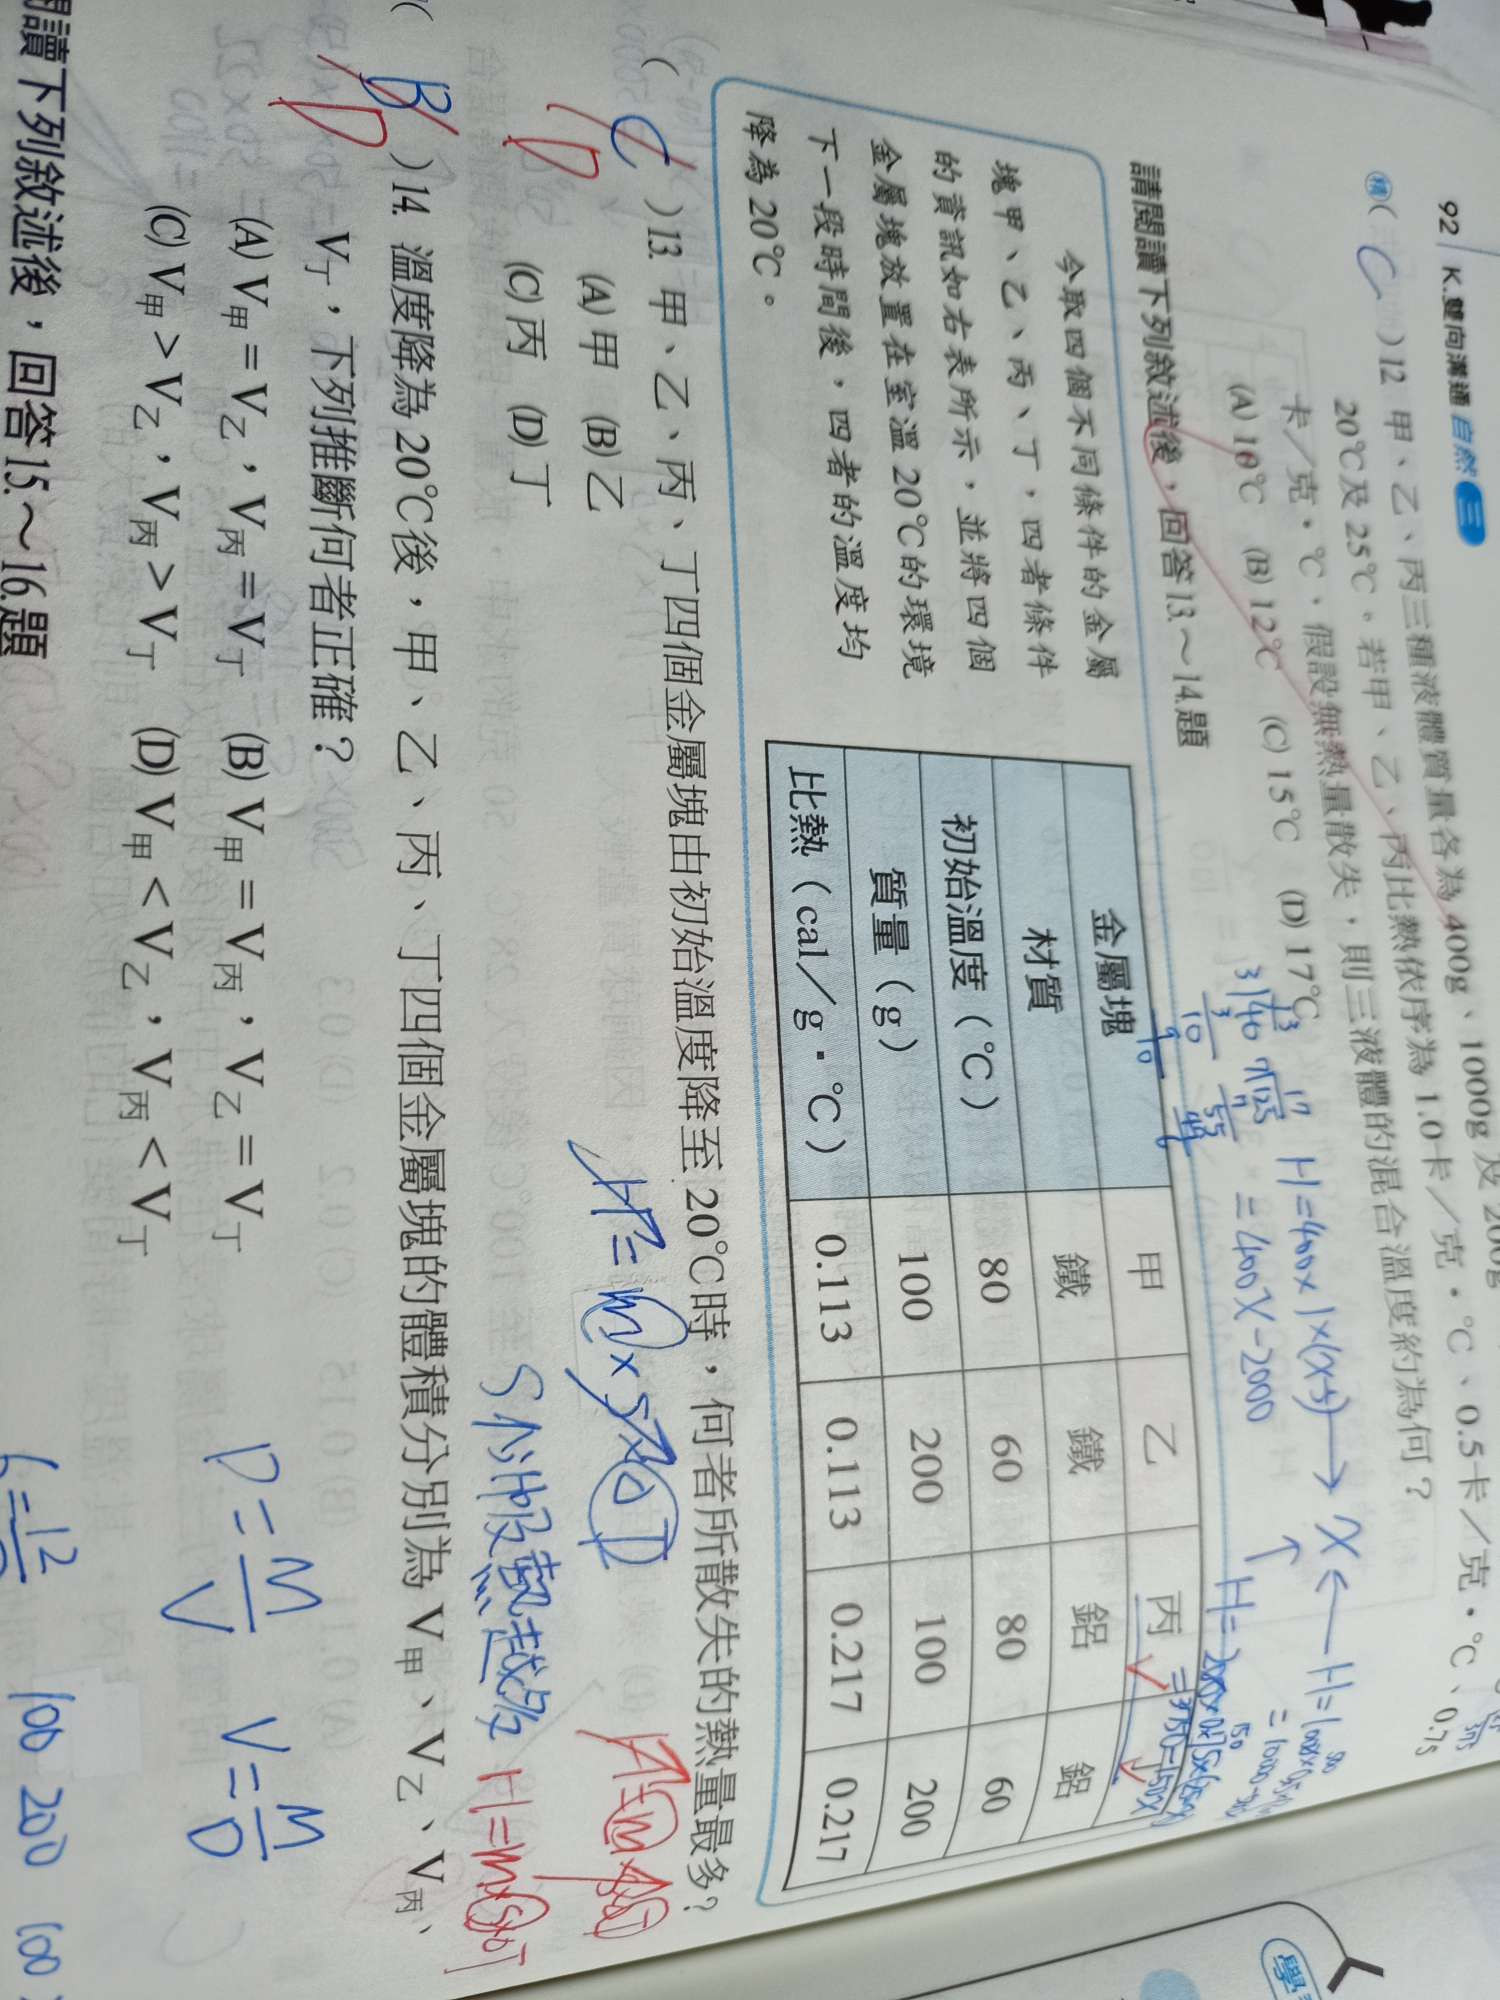 92 K.雙向溝通 自然 三
( C )12. 甲、乙、丙三種液體質量各為 400g、1000g 及 200g
20℃及 25℃。若甲、乙、丙比熱依序為 1.0卡/克・℃、0.5卡/克・℃、0.75
卡/克・℃,假設無熱量散失,則三液體的混合溫度約為何?
(A) 10℃ (B) 12℃ (C) 15℃ (D) 17℃
請閱讀下列敘述後,回答13.～14.題
今取四個不同條件的金屬
塊甲、乙、丙、丁,四者條件
的資訊如右表所示,並將四個
金屬塊放置在室溫 20℃的環境
下一段時間後,四者的溫度均
降為 20℃。
金屬塊 甲 乙 丙 丁
材質 鐵 鐵 鋁 鋁
初始溫度(℃) 80 60 80 60
質量(g) 100 200 100 200
比熱(cal/g・℃) 0.113 0.113 0.217 0.217
( C D )13. 甲、乙、丙、丁四個金屬塊由初始溫度降至 20℃時,何者所散失的熱量最多?
(A)甲 (B)乙
(C)丙 (D)丁
H=m×S×ΔT
( B D )14. 溫度降為 20℃後,甲、乙、丙、丁四個金屬塊的體積分別為 V甲、V乙、V丙、
V丁,下列推斷何者正確?
(A) V甲=V乙,V丙=V丁 (B) V甲=V丙,V乙=V丁
(C) V甲>V乙,V丙>V丁 (D) V甲<V乙,V丙<V丁
D=M/V V=M/D
閱讀下列敘述後,回答15.～16.題
100 200 100
H=400×1×(X-5)
=400X-2000